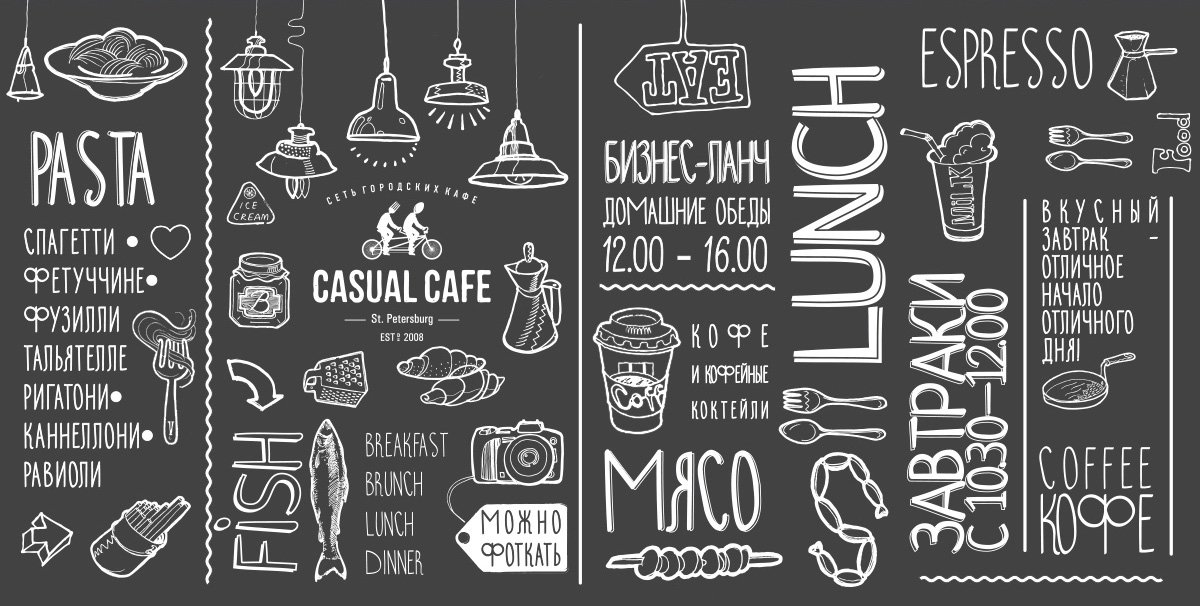 PASTA
СПАГЕТТИ
ФЕТУЧЧИНЕ
ФУЗИЛЛИ
ТАЛЬЯТЕЛЛЕ
РИГАТОНИ
КАННЕЛЛОНИ
РАВИОЛИ
ICE
CREAM
СЕТЬ ГОРОДСКИХ КАФЕ
CASUAL CAFE
St. Petersburg
ESTD 2008
B
FISH
BREAKFAST
BRUNCH
LUNCH
DINNER
МОЖНО
ФОТКАТЬ
EAT
БИЗНЕС-ЛАНЧ
ДОМАШНИЕ ОБЕДЫ
12.00 – 16.00
Coff
КОФЕ
И КОФЕЙНЫЕ
КОКТЕЙЛИ
МЯСО
LUNCH
ESPRESSO
Food
MILK
ЗАВТРАКИ
С 10.30–12.00
ВКУСНЫЙ
ЗАВТРАК -
ОТЛИЧНОЕ
НАЧАЛО
ОТЛИЧНОГО
ДНЯ!
COFFEE
КОФЕ